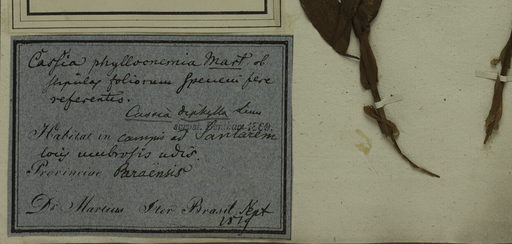 Cassia phylloonemia Mart ob
stipulas foliorum speciem fere
referentes.
Cassia diphylla Linn
Habitat in campis ad Santarem
locis umbrosis udis.
Provinciae Paraënsis
Dr Martius Iter Brasil Sept
1819